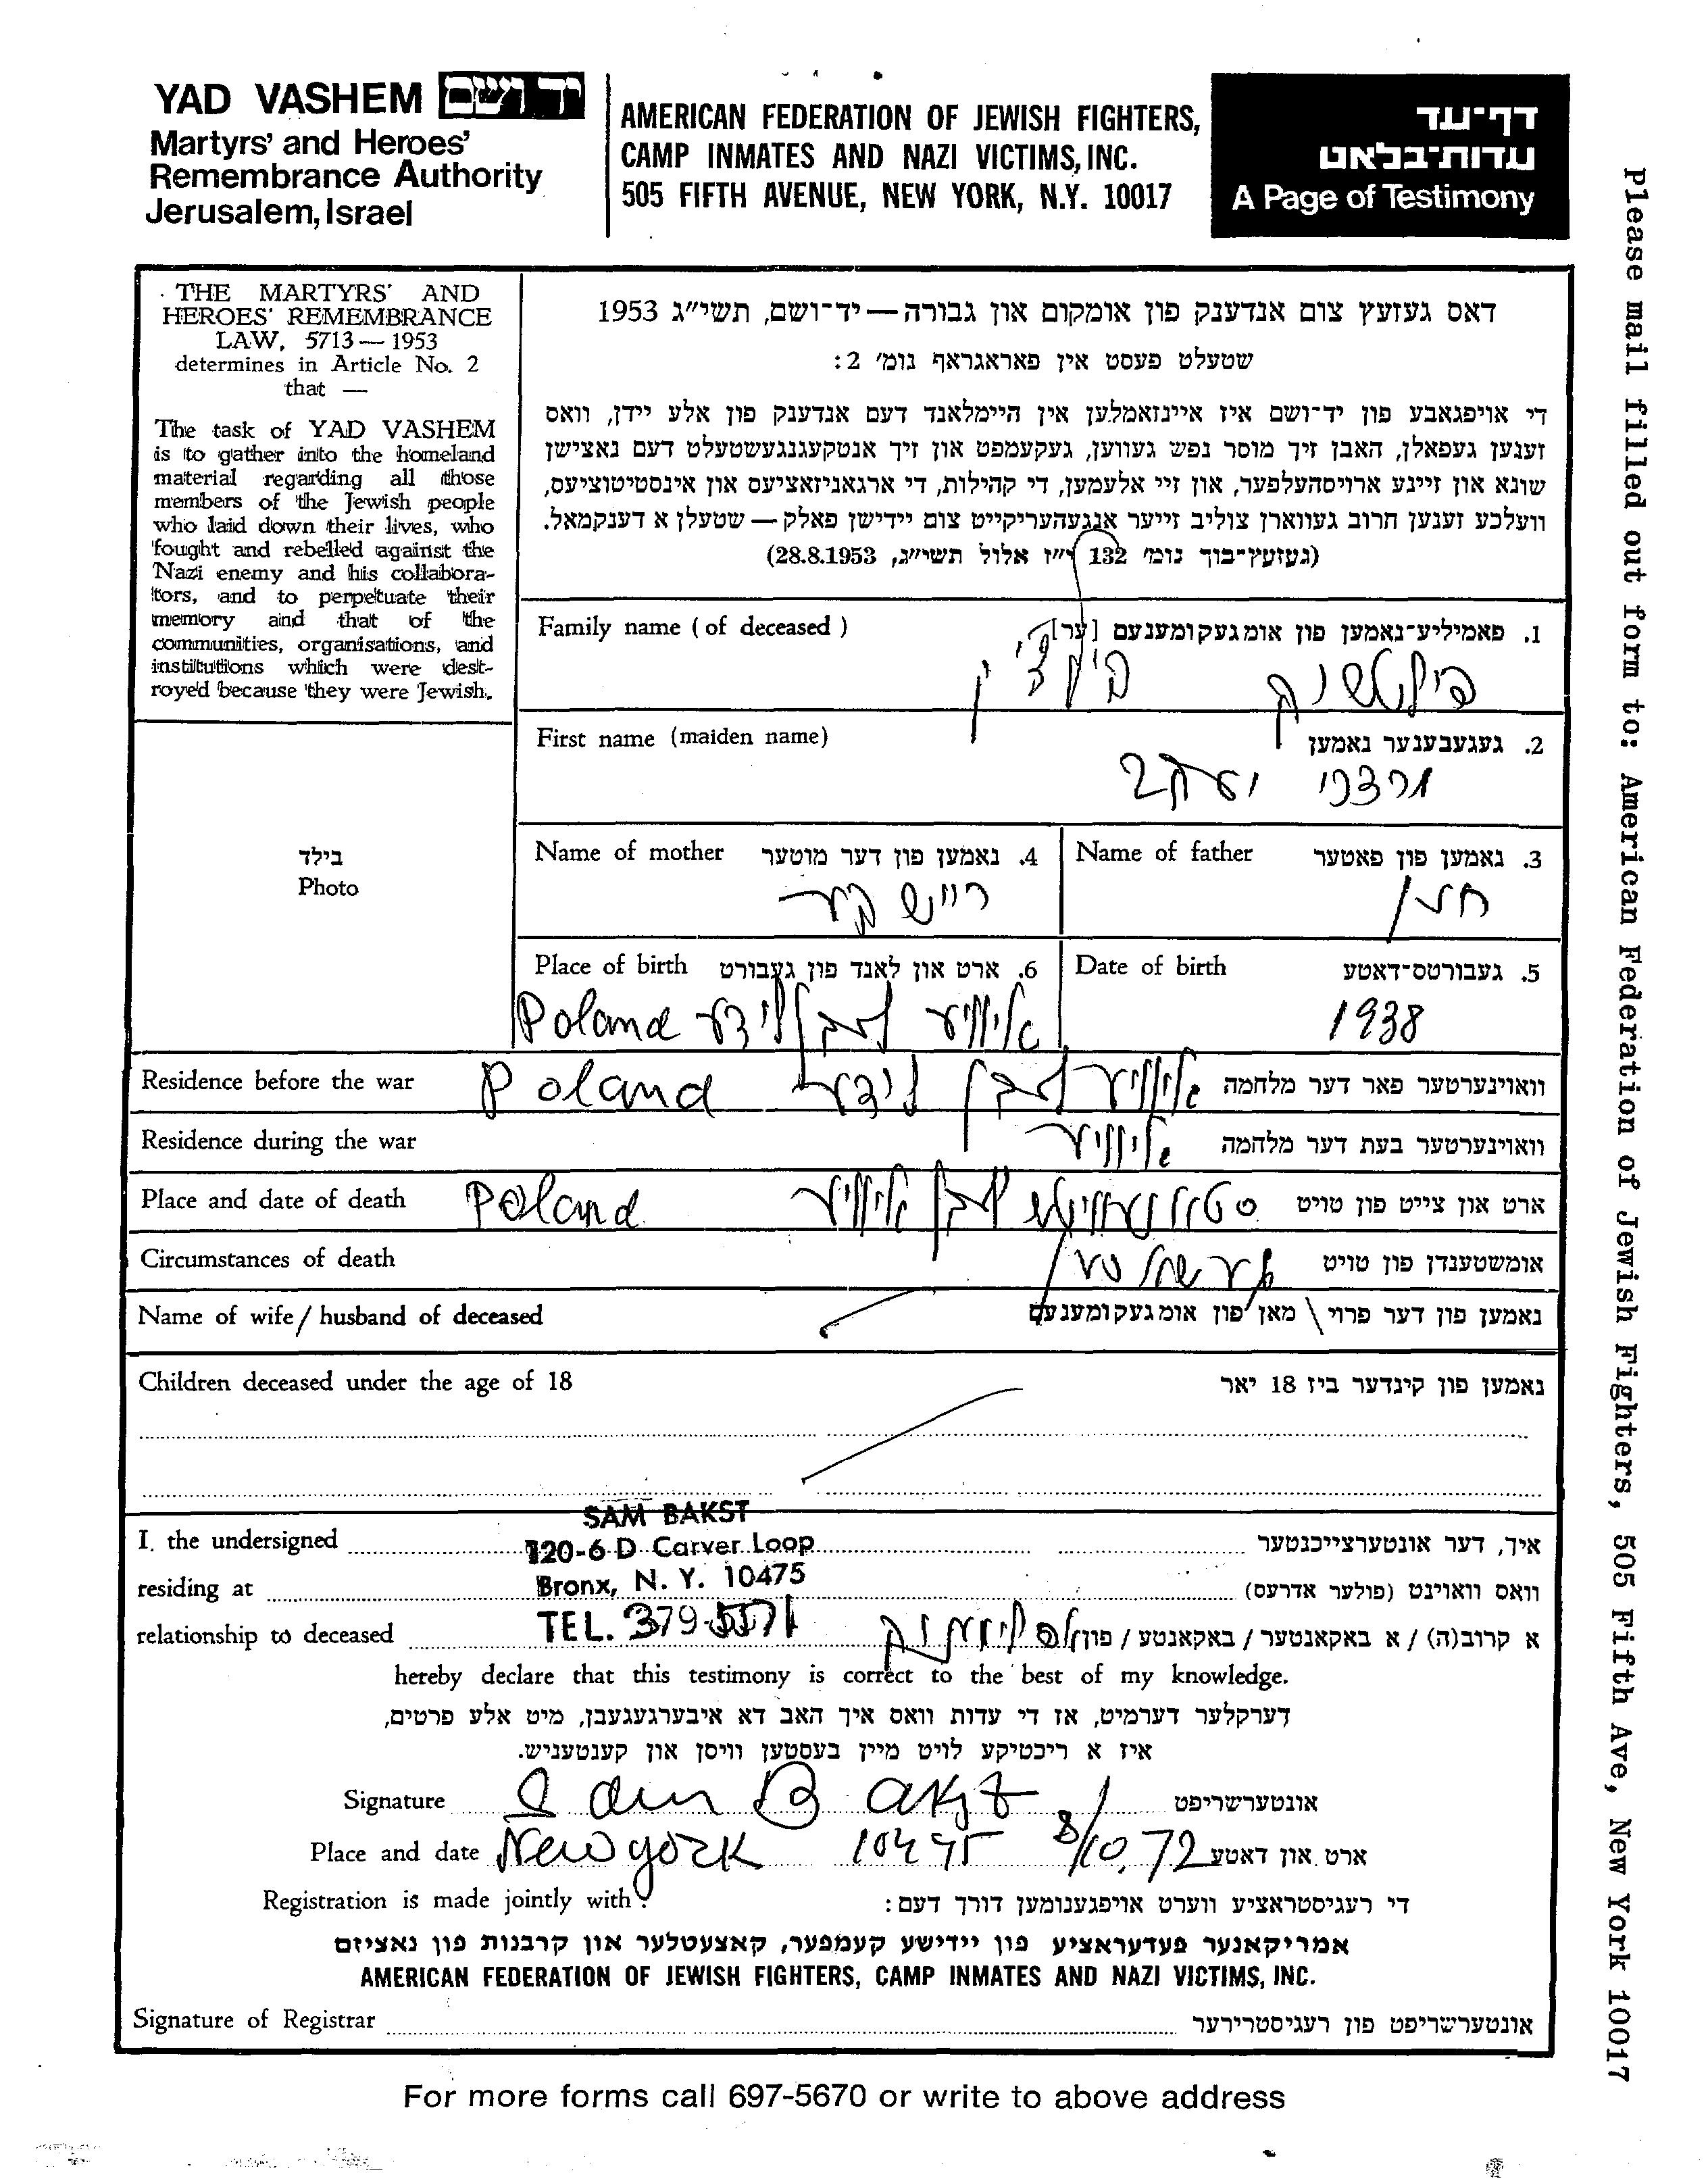 YAD VASHEM יד ושם
Martyrs' and Heroes'
Remembrance Authority
Jerusalem, Israel
AMERICAN FEDERATION OF JEWISH FIGHTERS,
CAMP INMATES AND NAZI VICTIMS, INC.
505 FIFTH AVENUE, NEW YORK, N.Y. 10017
דף-עד
עדות-בלאט
A Page of Testimony
Please mail filled out form to: American Federation of Jewish Fighters, 505 Fifth Ave, New York 10017
THE MARTYRS' AND
HEROES' REMEMBRANCE
LAW, 5713 — 1953
determines in Article No. 2
that —
The task of YAD VASHEM
is to gather into the homeland
material regarding all those
members of the Jewish people
who laid down their lives, who
fought and rebelled against the
Nazi enemy and his collabora-
tors, and to perpetuate their
memory and that of the
communities, organisations, and
institutions which were dest-
royed because they were Jewish.
דאס געזעץ צום אנדענק פון אומקום און גבורה — יד-ושם, תשי"ג 1953
שטעלט פעסט אין פאראגראף נומ' 2:
די אויפגאבע פון יד-ושם איז איינזאמלען אין היימלאנד דעם אנדענק פון אלע יידן, וואס
זענען געפאלן, האבן זיך מוסר נפש געווען, געקעמפט און זיך אנטקעגנגעשטעלט דעם נאצישן
שונא און זיינע ארויסהעלפער, און זיי אלעמען, די קהילות, די ארגאניזאציעס און אינסטיטוציעס,
וועלכע זענען חרוב געווארן צוליב זייער אנגעהעריקייט צום יידישן פאלק — שטעלן א דענקמאל.
(געזעץ-בוך נומ' 132 י"ז אלול תשי"ג, 28.8.1953)
Family name ( of deceased )
1. פאמיליע-נאמען פון אומגעקומענעם [ער]
First name (maiden name)
2. געגעבענער נאמען
יעקב
בילד
Photo
Name of mother 4. נאמען פון דער מוטער
Name of father 3. נאמען פון פאטער
Place of birth 6. ארט און לאנד פון געבורט
Poland לידע לעבן אילוויע
Date of birth 5. געבורטס-דאטע
1938
Residence before the war
Poland לידע לעבן אילוויע
וואוינערטער פאר דער מלחמה
Residence during the war
אילוויע
וואוינערטער בעת דער מלחמה
Place and date of death
Poland לעבן אילוויע
ארט און צייט פון טויט
Circumstances of death
אומשטענדן פון טויט
Name of wife / husband of deceased
נאמען פון דער פרוי \ מאן פון אומגעקומענעם
Children deceased under the age of 18
נאמען פון קינדער ביז 18 יאר
SAM BAKST
I. the undersigned
120-6 D Carver Loop
איך, דער אונטערצייכנטער
residing at
Bronx, N. Y. 10475
וואס וואוינט (פולער אדרעס)
relationship to deceased
TEL. 379-5571
א קרוב(ה) / א באקאנטער / באקאנטע / פון
hereby declare that this testimony is correct to the best of my knowledge.
דערקלער דערמיט, אז די עדות וואס איך האב דא איבערגעגעבן, מיט אלע פרטים,
איז א ריכטיקע לויט מיין בעסטען וויסן און קענטעניש.
Signature Sam Bakst אונטערשריפט
Place and date New york 10475 8/10,72 ארט און דאטע
Registration is made jointly with
די רעגיסטראציע ווערט אויפגענומען דורך דעם:
אמריקאנער פעדעראציע פון יידישע קעמפער, קאצעטלער און קרבנות פון נאציזם
AMERICAN FEDERATION OF JEWISH FIGHTERS, CAMP INMATES AND NAZI VICTIMS, INC.
Signature of Registrar אונטערשריפט פון רעגיסטרירער
For more forms call 697-5670 or write to above address